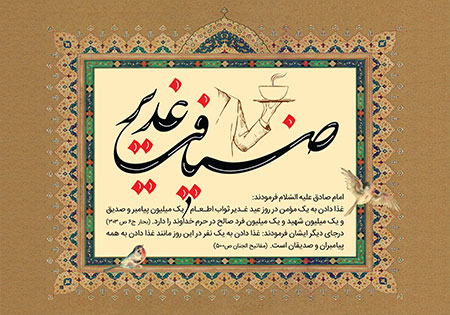 ضیافت غدیر
امام صادق علیه السّلام فرمودند:
غذا دادن به یک مؤمن در روز عید غدیر ثواب اطعام یک میلیون پیامبر و صدیق
و یک میلیون شهید و یک میلیون فرد صالح در حرم خداوند را دارد. (بحار ج۶ ص۳۰۳)
درجای دیگر ایشان فرمودند: غذا دادن به یک نفر در این روز مانند غذا دادن به همه
پیامبران و صدیقان است. (مفاتیح الجنان ص۵۰۰)